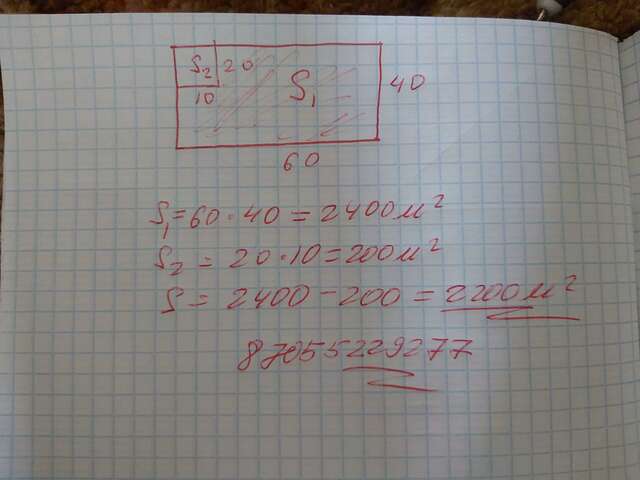 S₂ 20
10
S₁
40
60
S₁ = 60 · 40 = 2400 м²
S₂ = 20 · 10 = 200 м²
S = 2400 - 200 = 2200 м²
87055229277